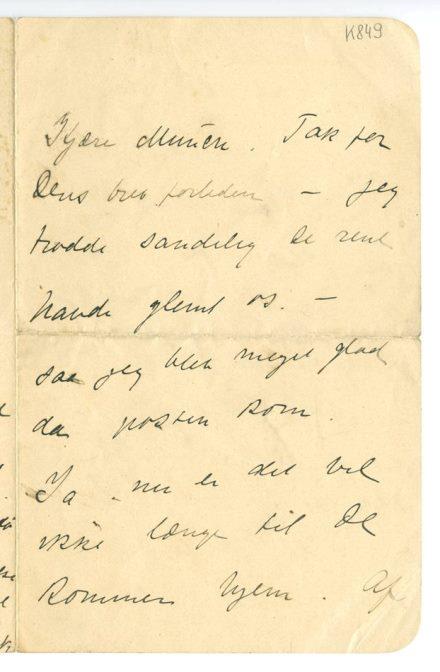 K849
Kjære Munch. Tak for
Dens brev forleden – jeg
trodde sandelig De rent
havde glemt os. –
saa jeg blev meget glad
da posten kom.
Ja – nu er det vel
ikke længe til De
kommer hjem. Af